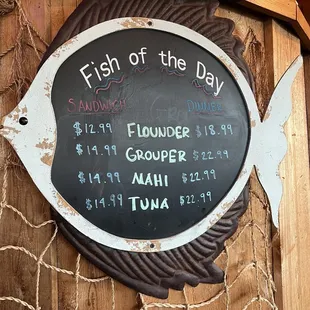 Fish of the Day
SANDWICH DINNER
$12.99 FLOUNDER $18.99
$14.99 GROUPER $22.99
$14.99 MAHI $22.99
$14.99 TUNA $22.99